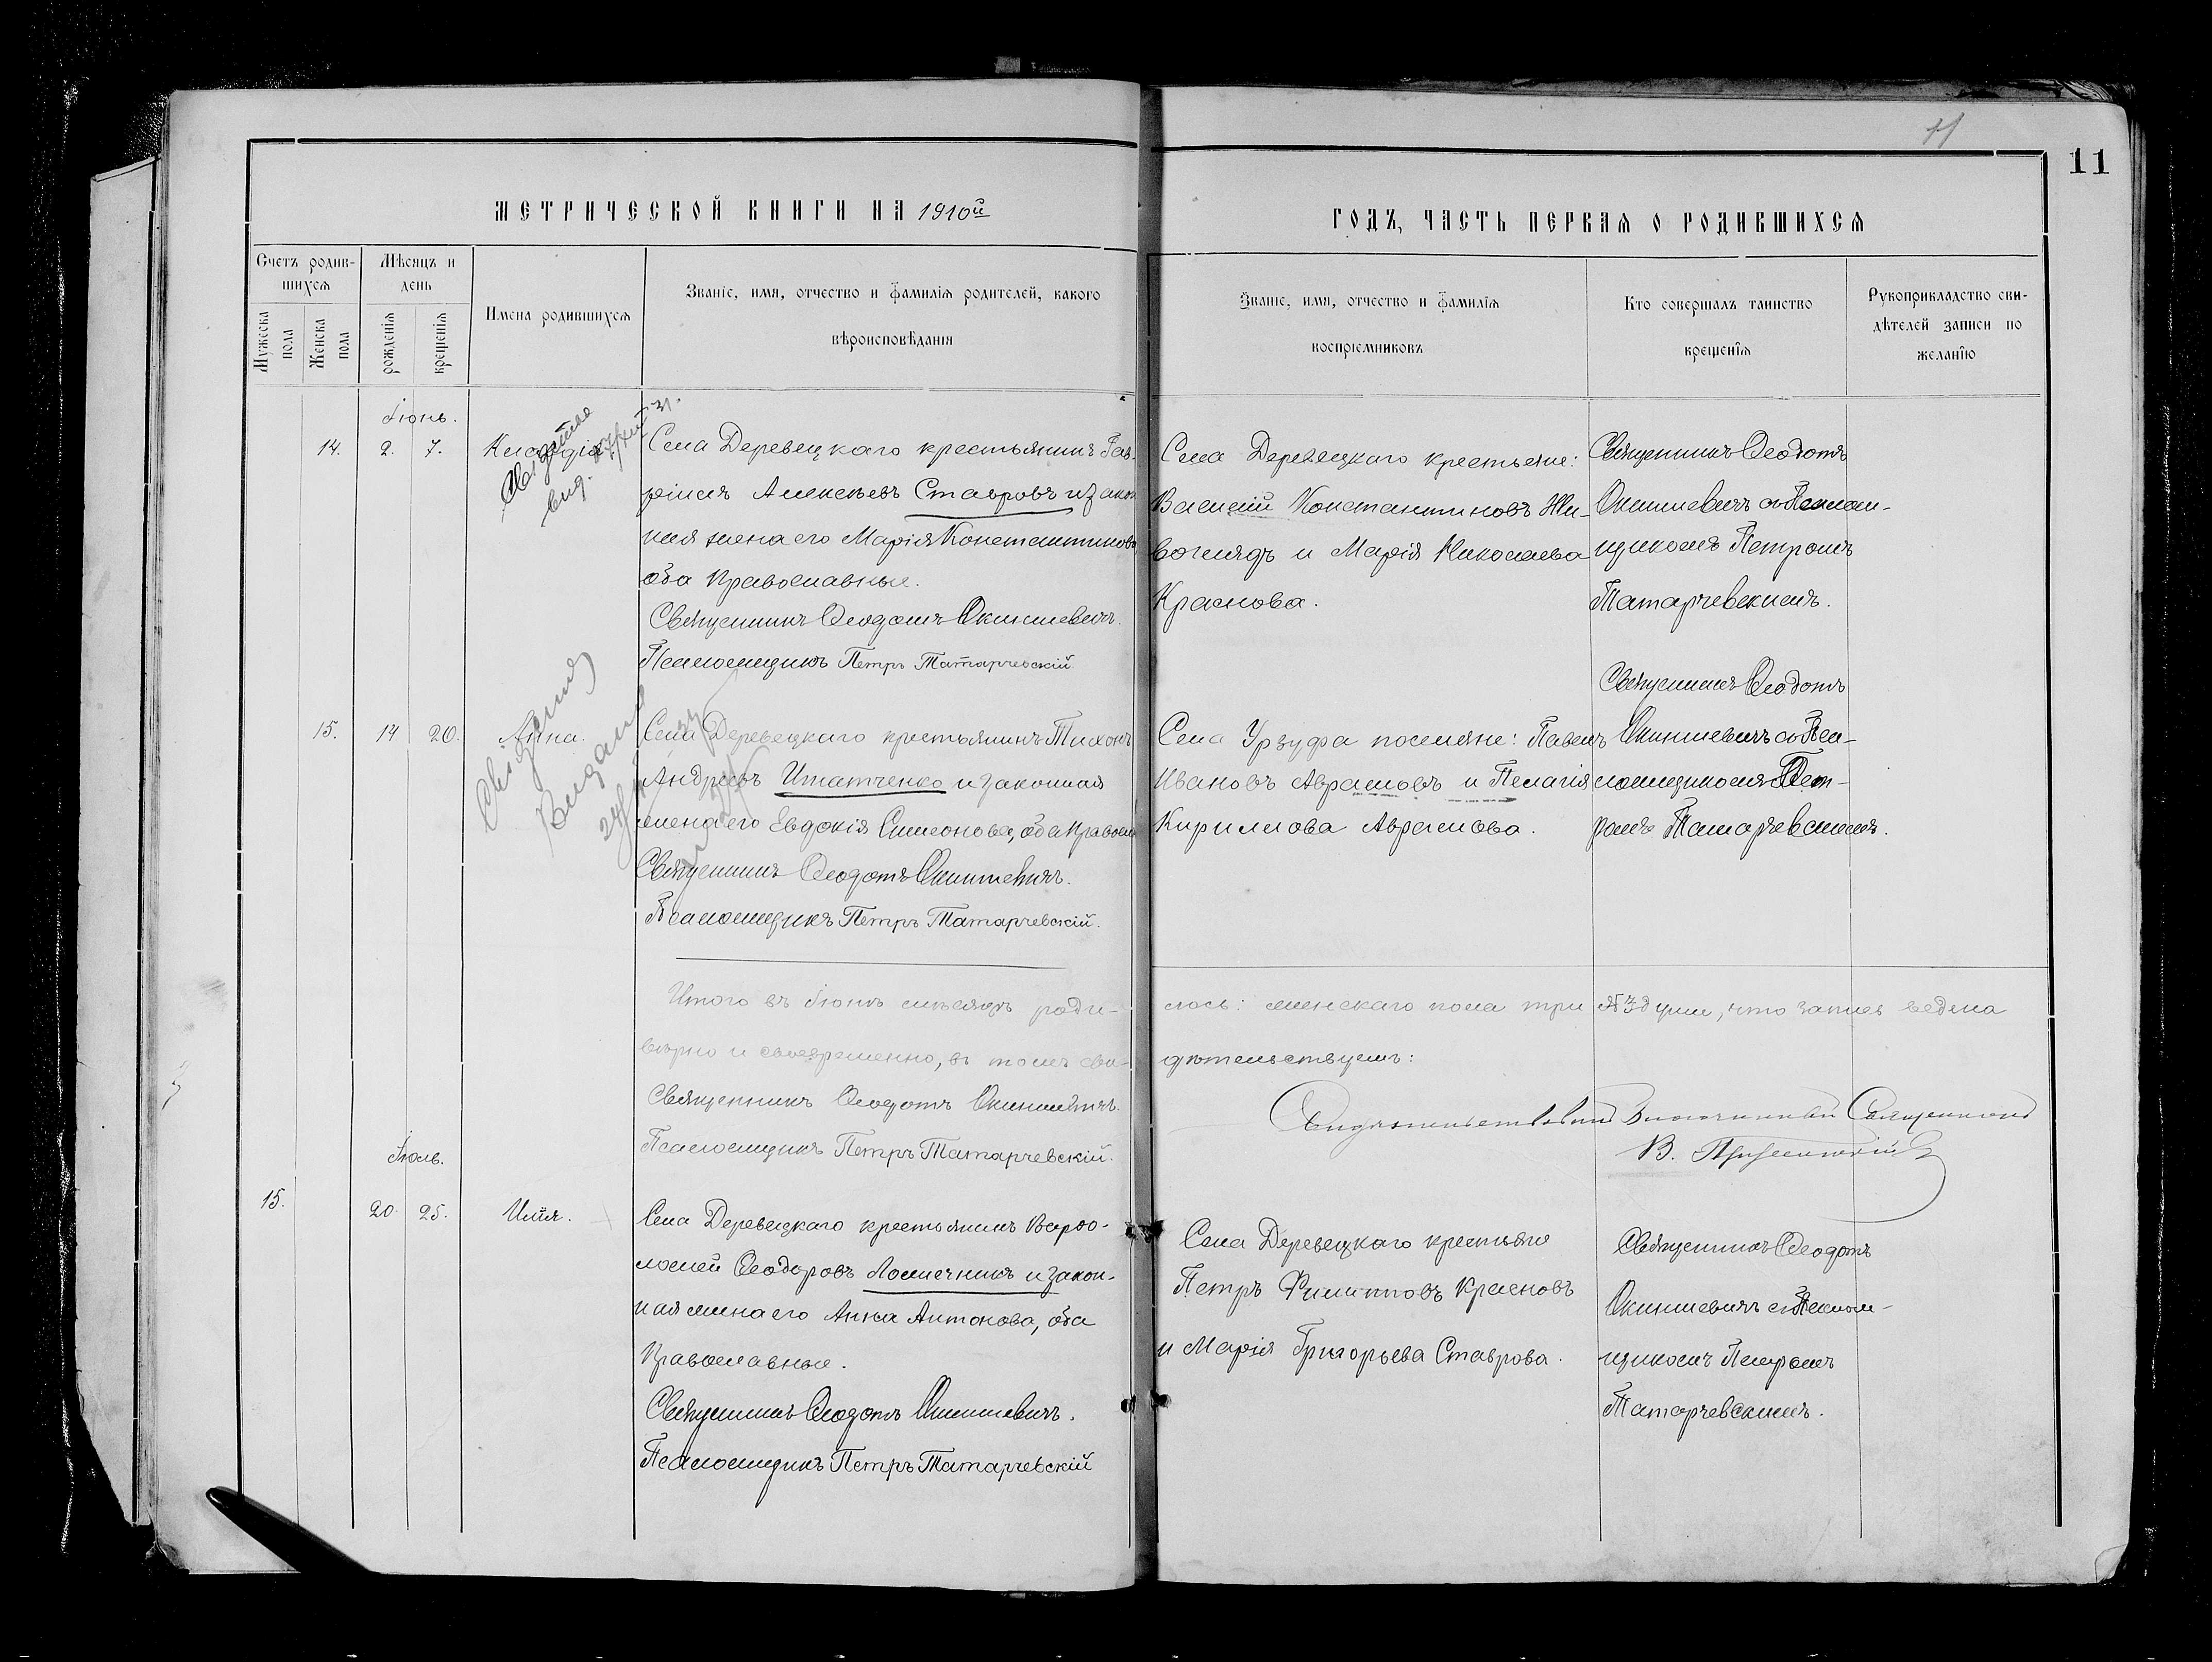 11
11
МЕТРИЧЕСКОЙ КНИГИ НА 1910й
ГОДЪ, ЧАСТЬ ПЕРВАЯ О РОДИВШИХСЯ
Счетъ родив-
шихся
Мужеска
пола
Женска
пола
Мѣсяцъ и
день
рожденія
крещенія
Имена родившихся
Званіе, имя, отчество и фамилія родителей, какого
вѣроисповѣданія
Званіе, имя, отчество и фамилія
воспріемниковъ
Кто совершалъ таинство
крещенія
Рукоприкладство сви-
дѣтелей записи по
желанію
Іюнь.
14. 2. 7. Клавдія
Села Деревецкаго крестьянинъ Гав-
ріилъ Алексѣевъ Ставровъ и закон
ная жена его Марія Константинова
оба православные.
Священникъ Ѳеодотъ Окиншевичъ.
Псаломщикъ Петръ Татарчевскій
Села Деревецкаго крестьяне:
Василій Константиновъ Жи-
воглядъ и Марія Николаева
Краснова.
Священникъ Ѳеодотъ
Окиншевичъ съ Псалом-
щикомъ Петромъ
Татарчевскимъ.
15. 14 20. Анна.
Свидѣт
выдано
Села Деревецкаго крестьянинъ Тихонъ
Андреевъ Игнатченко и законная
жена его Евдокія Симеонова, оба правосл
Священникъ Ѳеодотъ Окиншевичъ.
Псаломщикъ Петръ Татарчевскій.
Села Урзуфа поселяне: Павелъ
Ивановъ Аврамовъ и Пелагія
Кириллова Аврамова.
Священникъ Ѳеодотъ
Окиншевичъ съ Пса-
ломщикомъ Пет-
ромъ Татарчевскимъ.
Итого въ Іюнѣ мѣсяцѣ роди-
лось: женскаго пола три №3 души, что запись ведена
вѣрно и своевременно, въ томъ сви-
дѣтельствуемъ:
Священникъ Ѳеодотъ Окиншевичъ.
Псаломщикъ Петръ Татарчевскій.
Священникъ
В.
Іюль.
15. 20. 25. Илія.
Села Деревецкаго крестьянинъ Варѳо-
ломей Ѳеодоровъ Лосичникъ и закон-
ная жена его Анна Антонова, оба
православные.
Священникъ Ѳеодотъ Окиншевичъ.
Псаломщикъ Петръ Татарчевскій
Села Деревецкаго крестьяне
Петръ Филипповъ Красновъ
и Марія Григорьева Ставрова.
Священникъ Ѳеодотъ
Окиншевичъ съ Псалом-
щикомъ Петромъ
Татарчевскимъ.